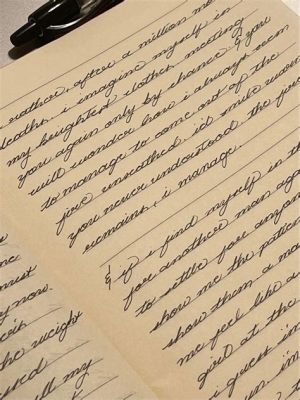 rather, after a million me
deaths, i imagine myself in
my brightest clothes meeting
you again only by chance. & you
will wonder how i always seem
to manage to come out of the
fire unscathed. i'd smile
you never understood. the
remains, i manage.
& if i find myself in th
for another man aga
to settle for anyon
show me the patien
show them a mo
me feel like a
girl at the
i guess i
in im
must
y now.
the weight
ll my